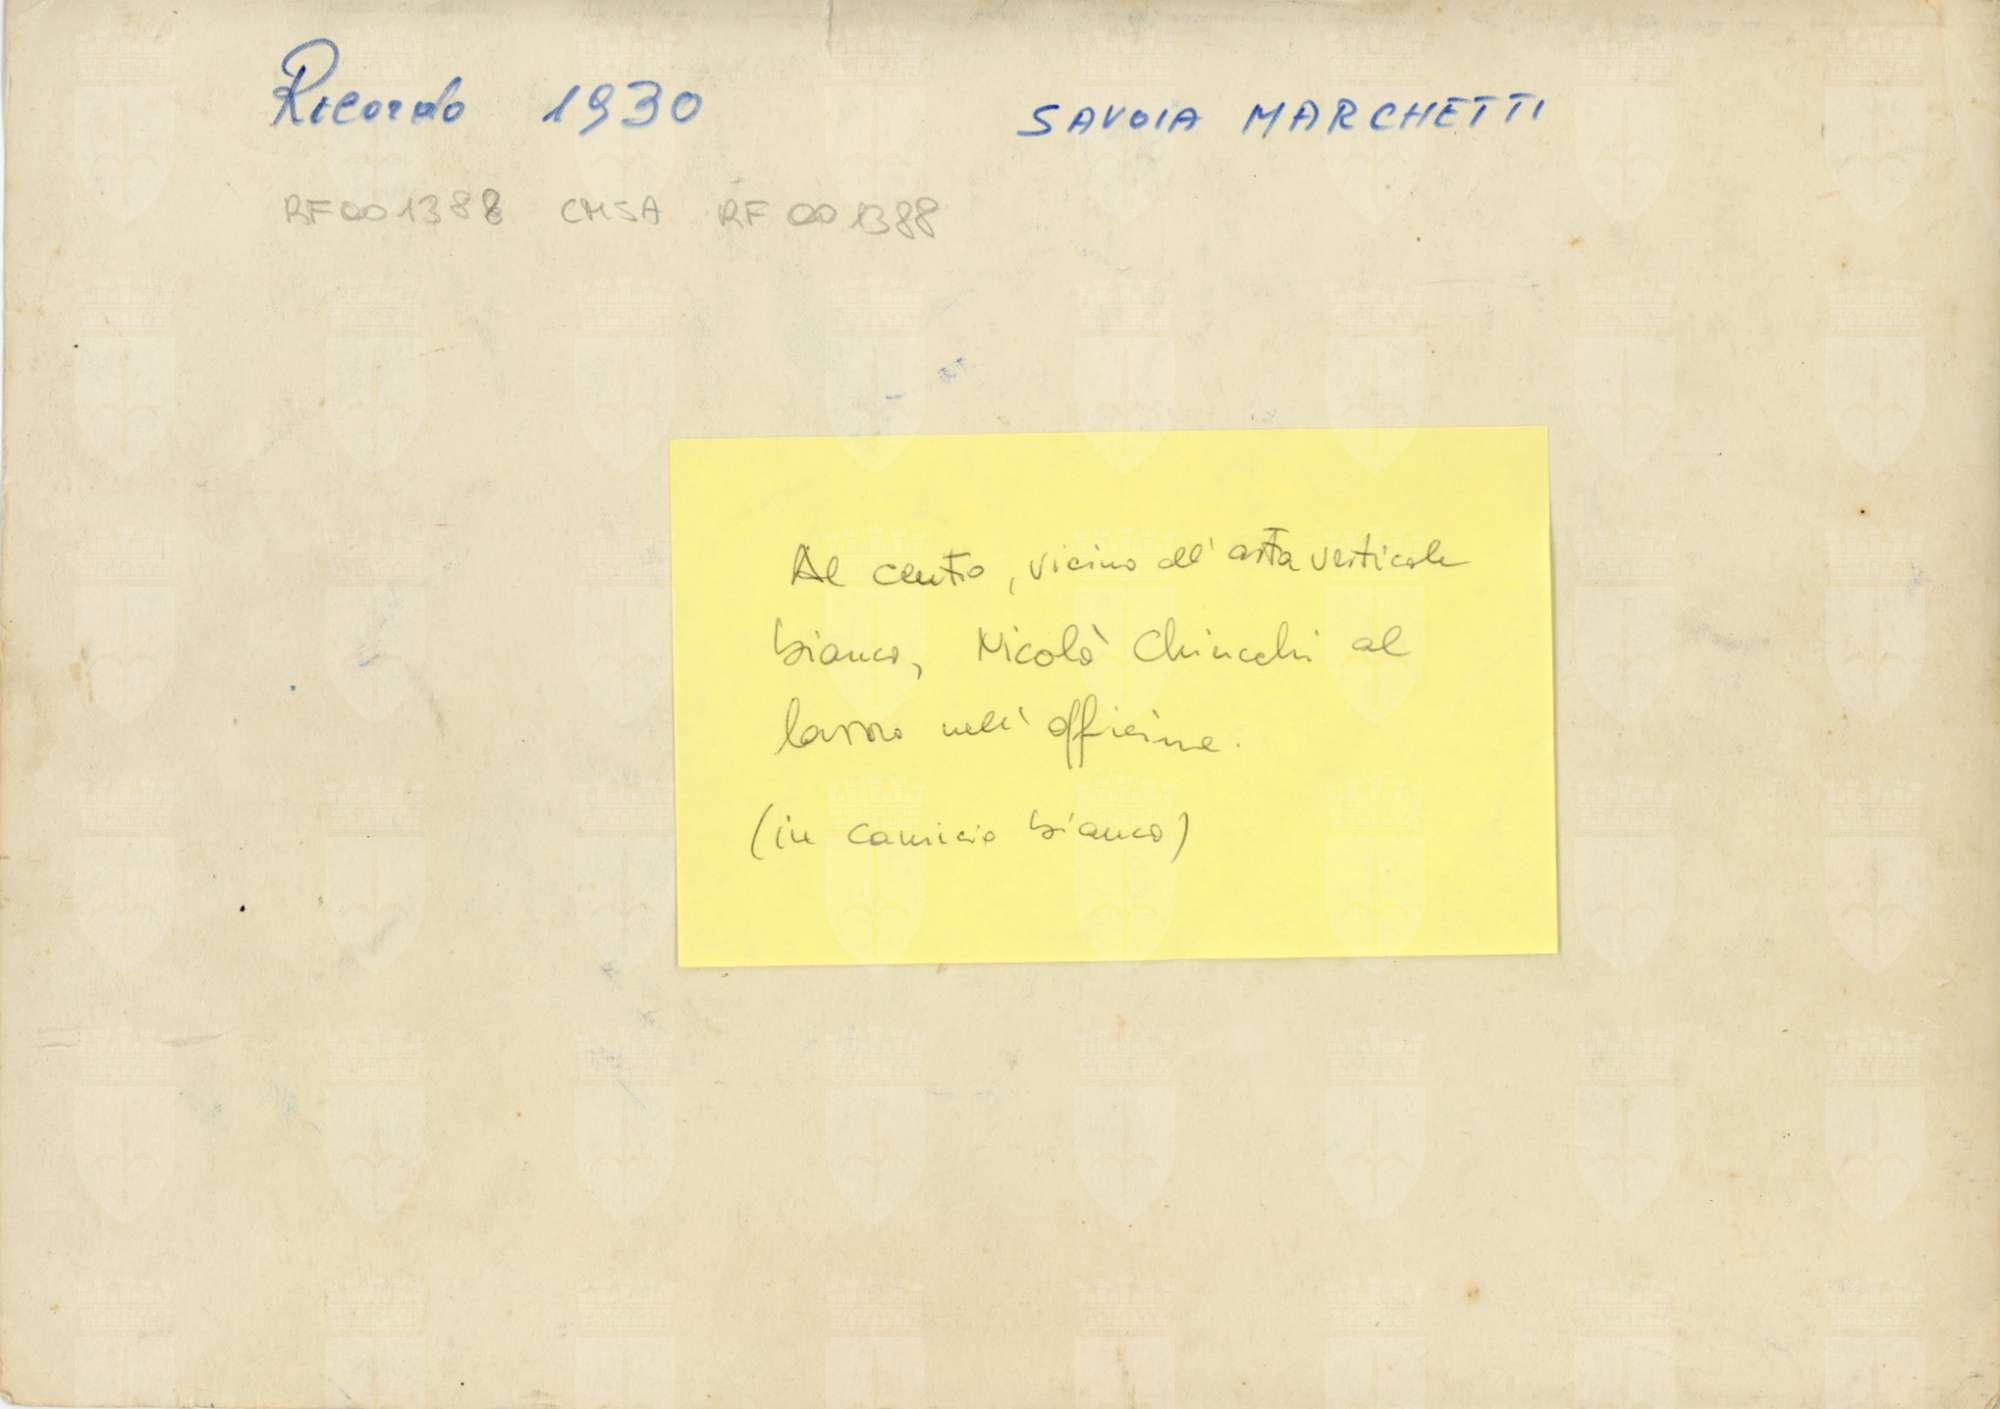 Ricordo 1930 SAVOIA MARCHETTI
RF001388 CMSA RF001388
Al centro, vicino all'asta verticale
bianca, Nicolò Chiucchi al
lavoro nell'officina.
(in camicia bianca)